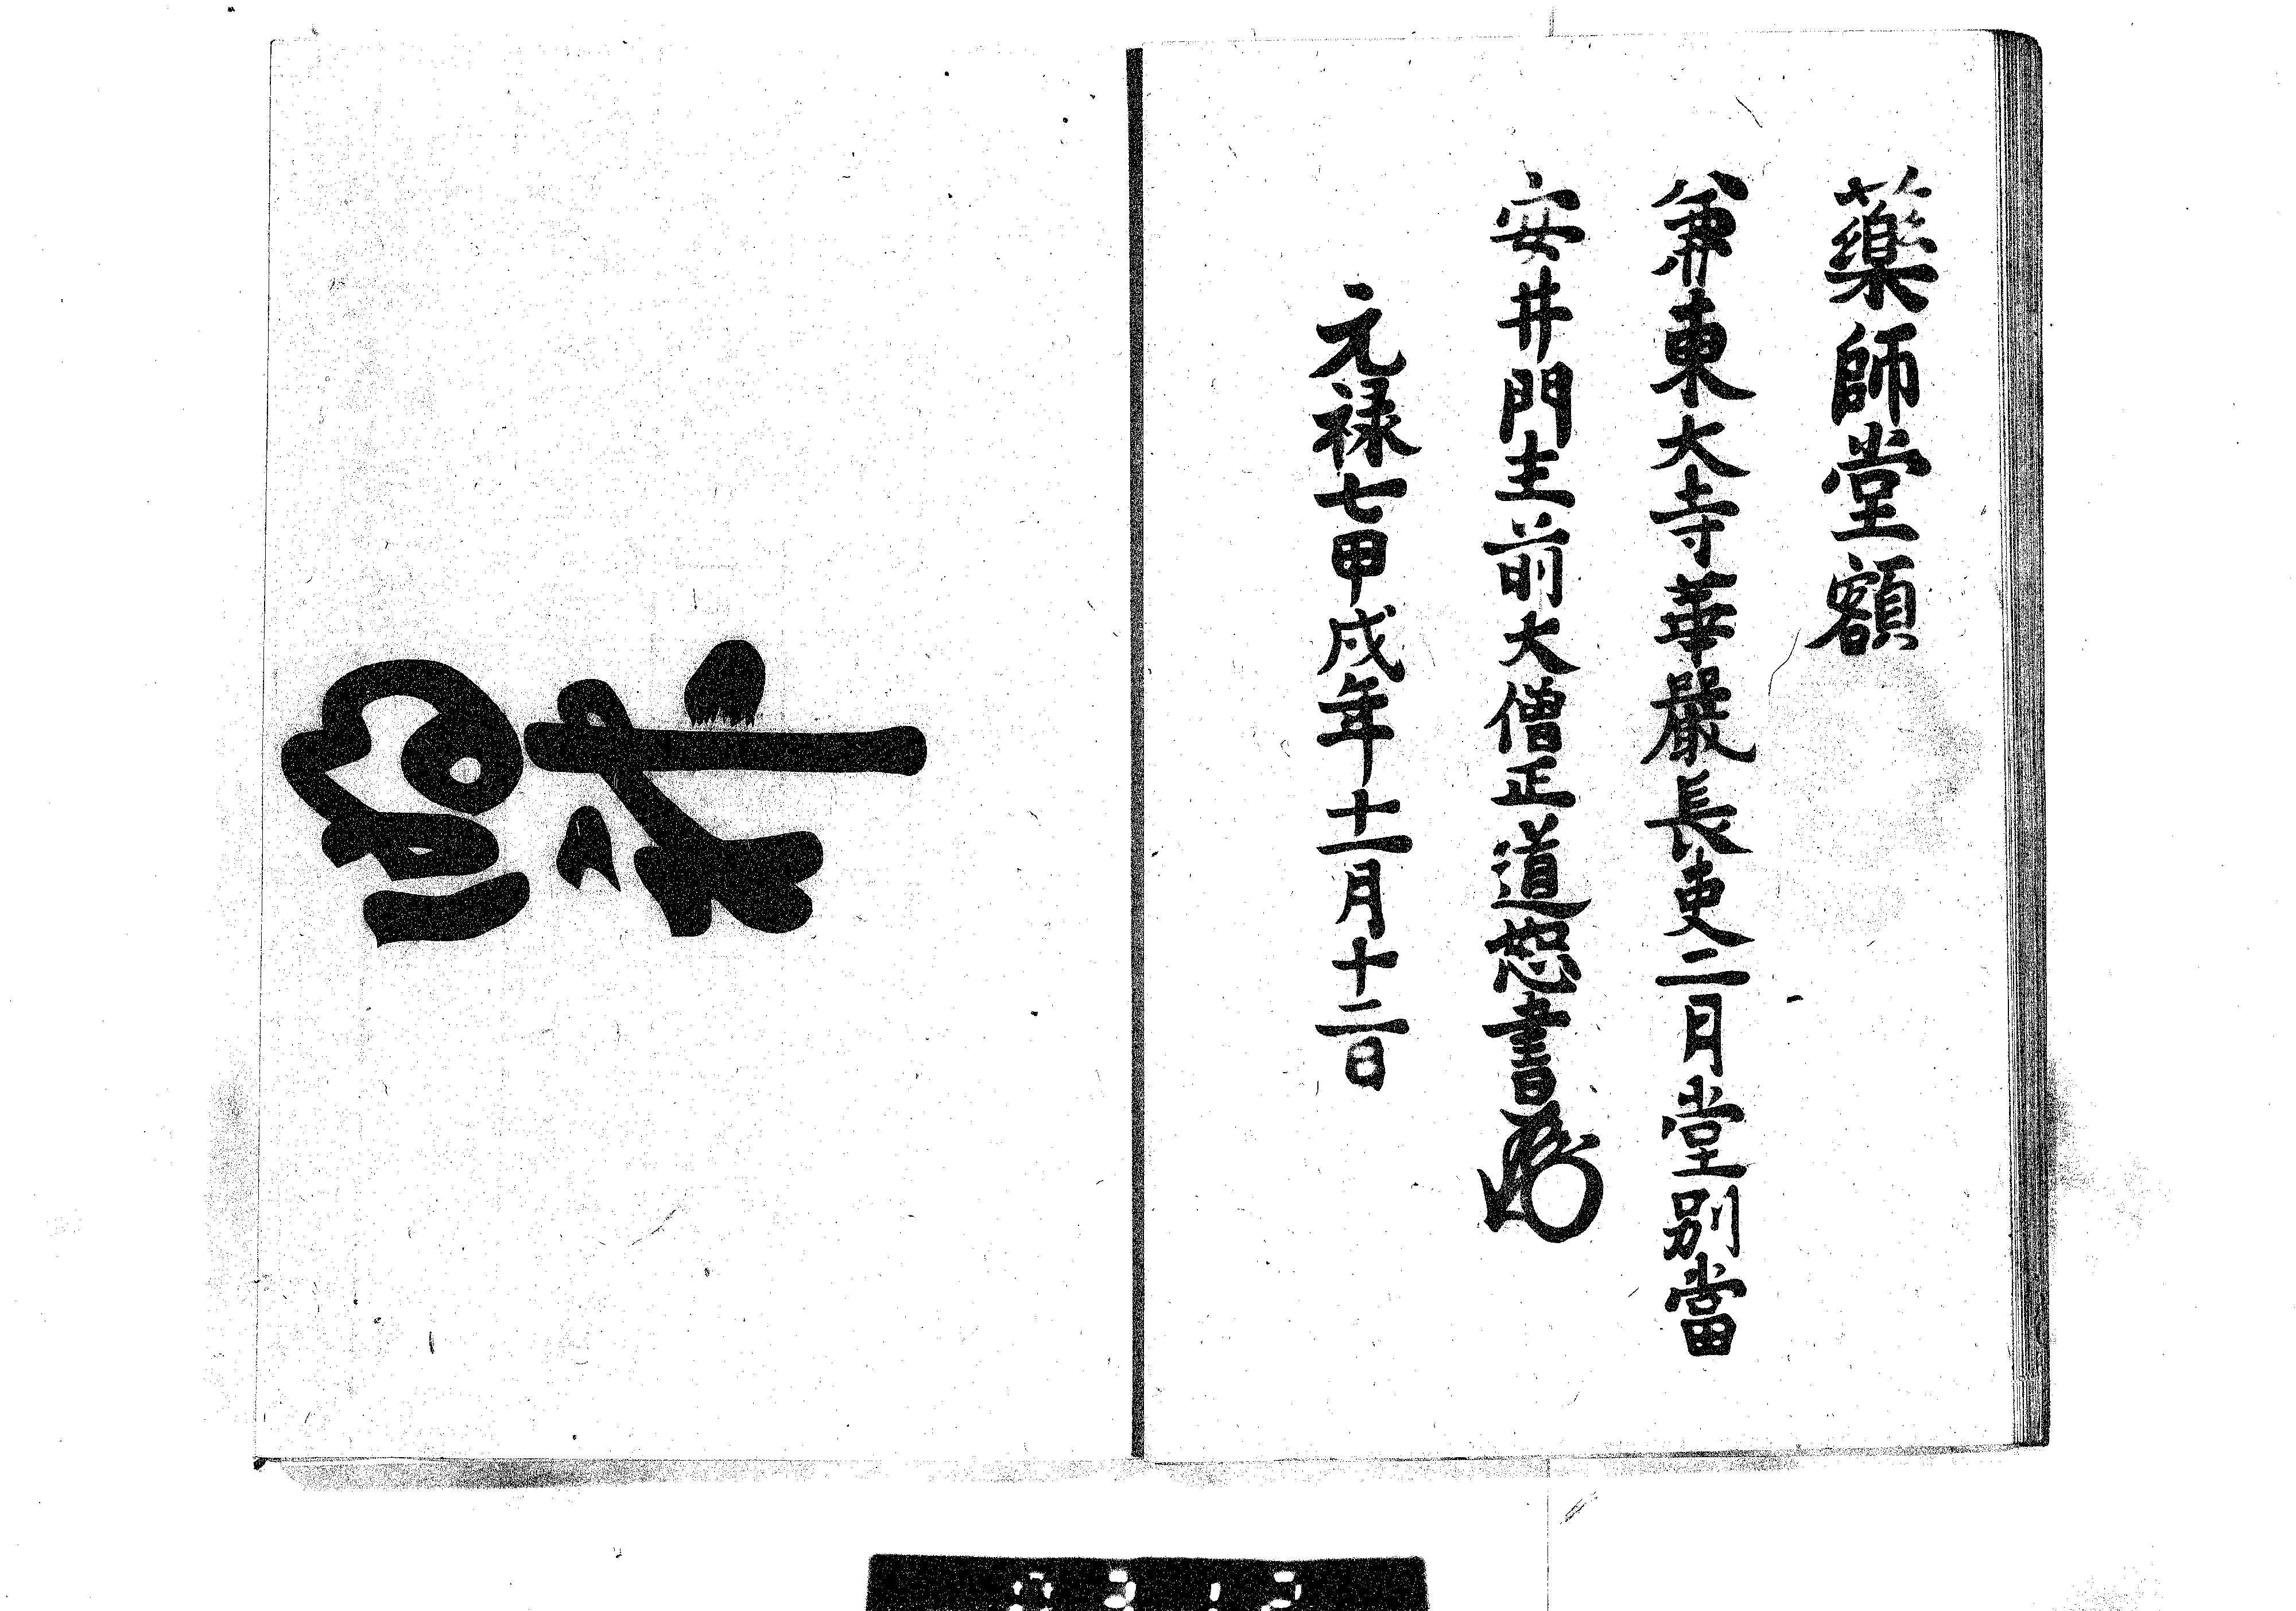 藥師堂額
兼東大寺華嚴長吏二月堂別當
安井門主前大僧正道恕書
元禄七甲戌年十一月十二日